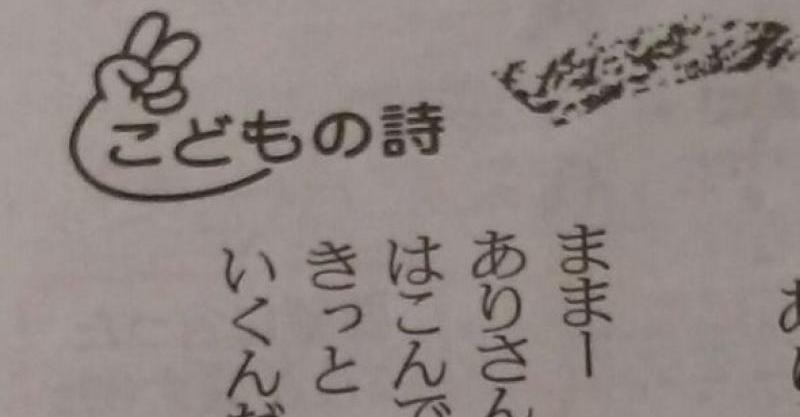 こどもの詩
ままー
ありさん
はこんで
きっと
いくんだ